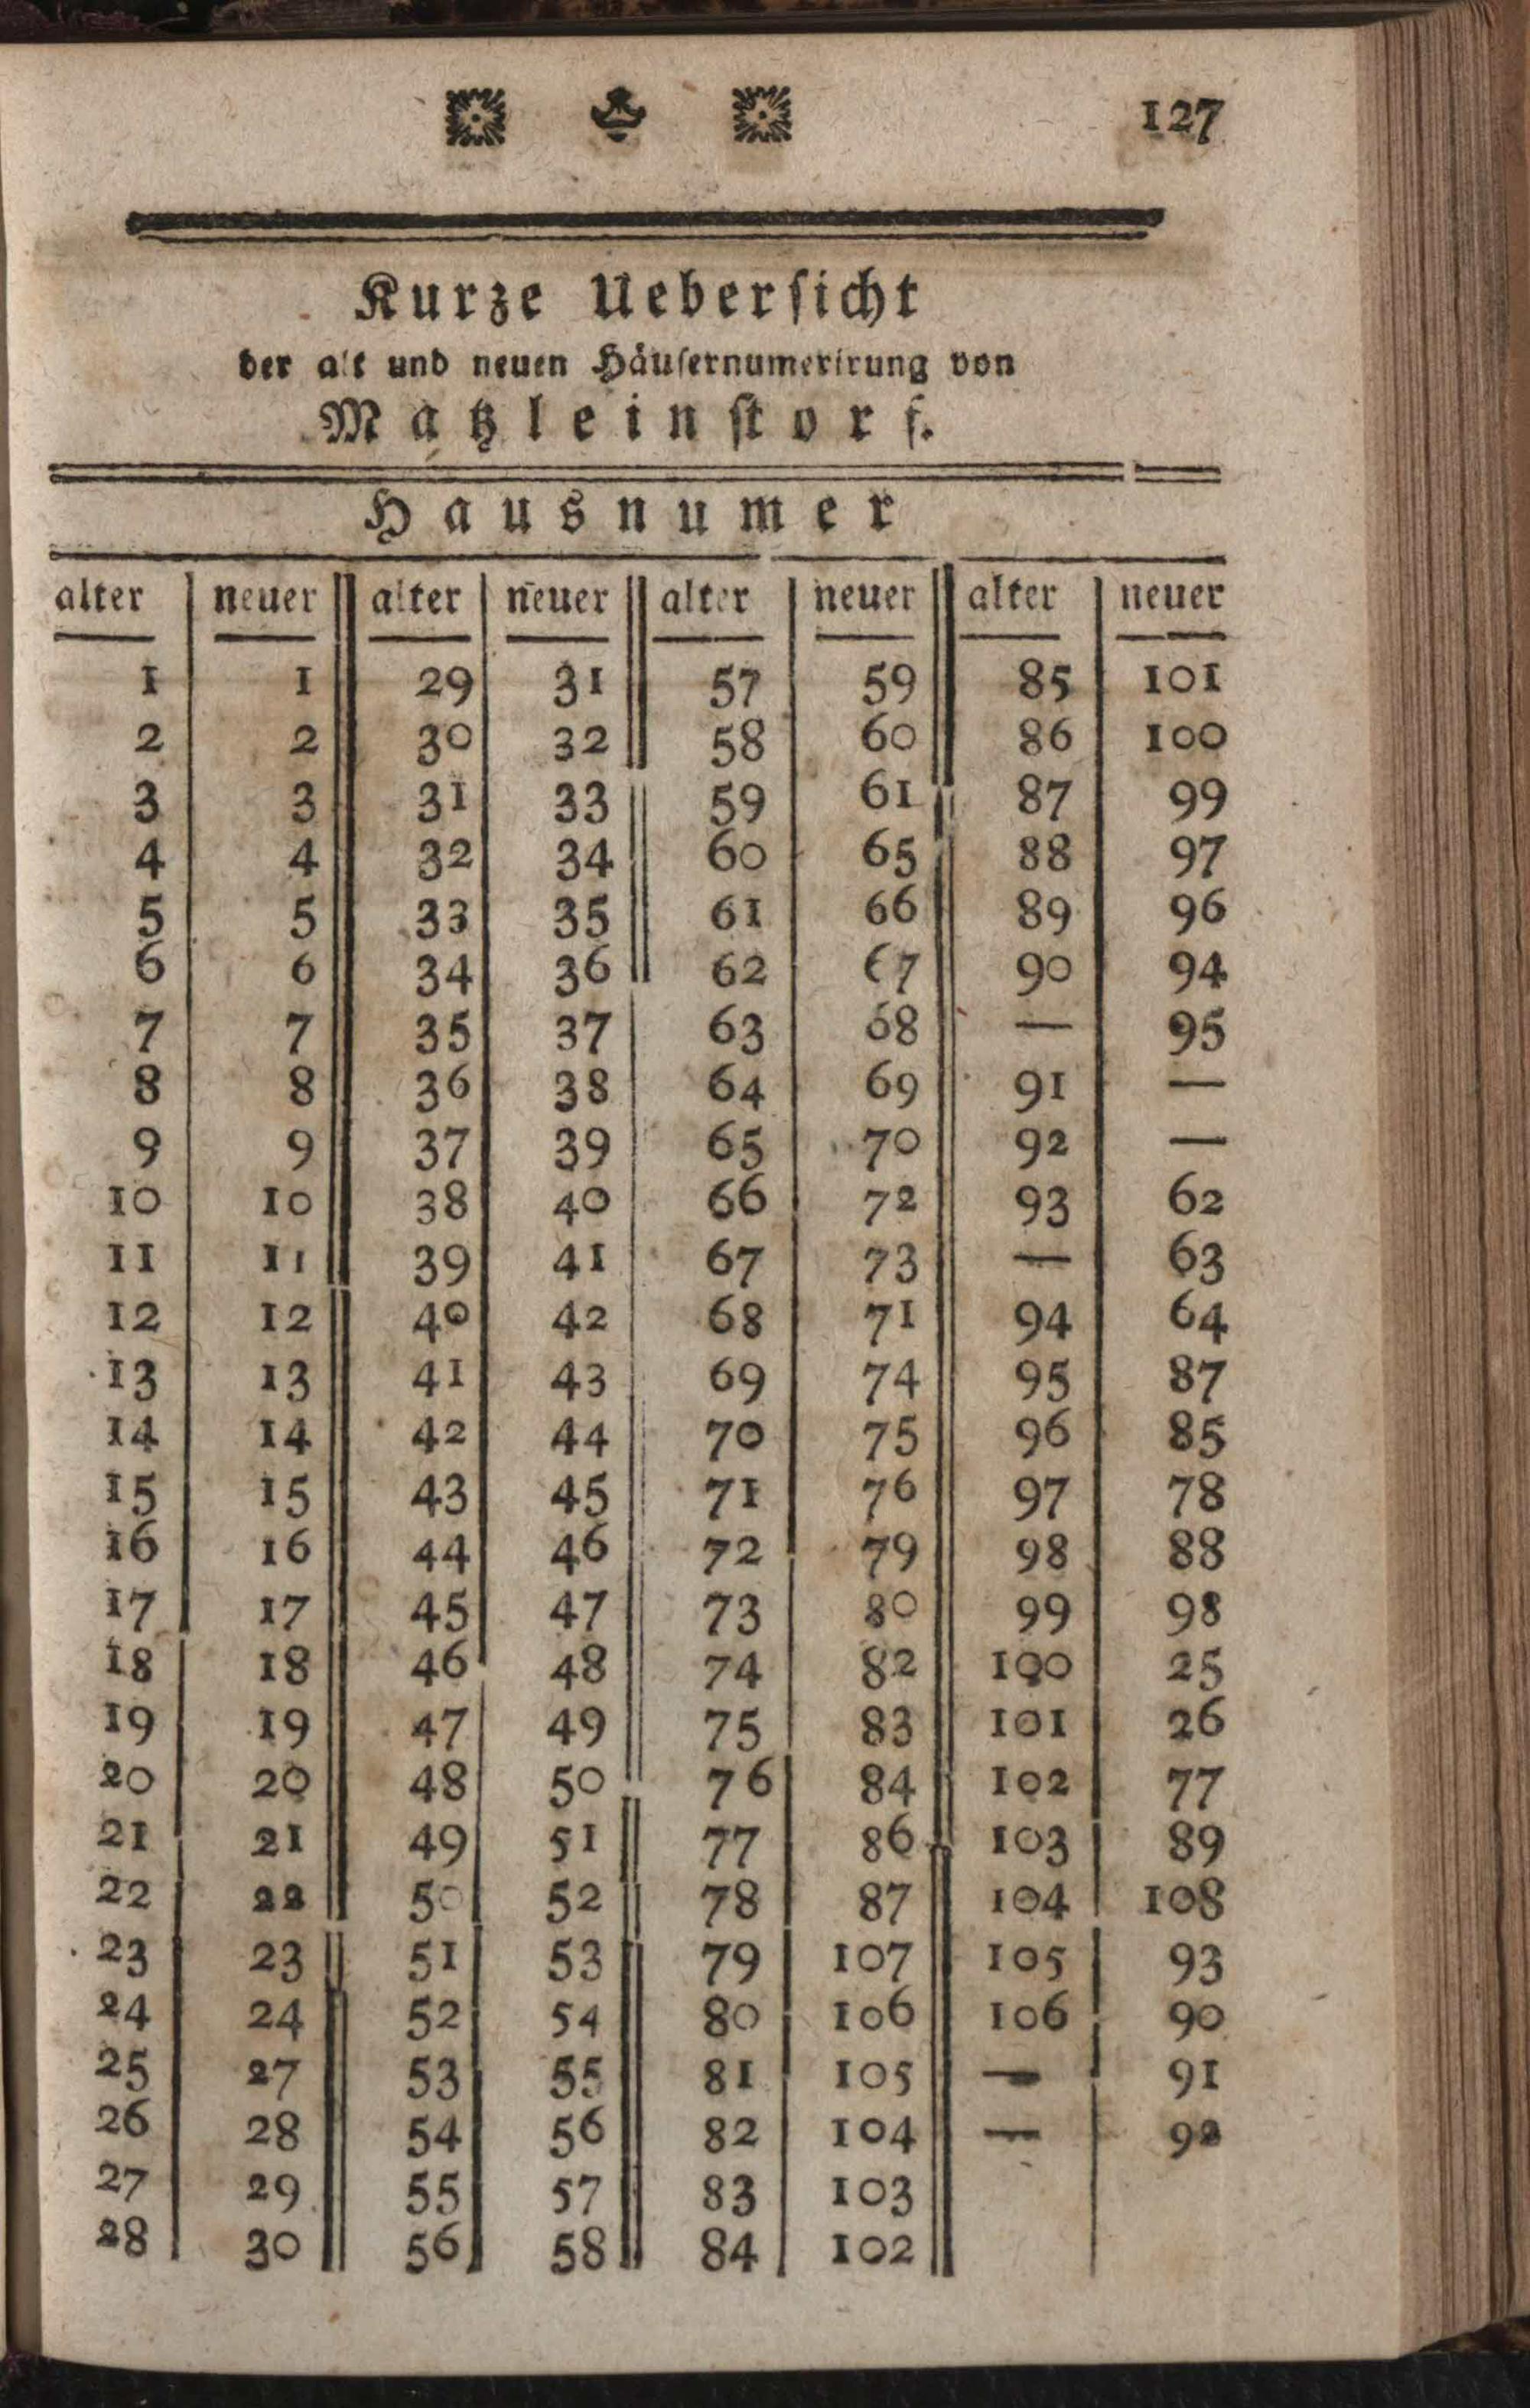 127
Kurze Uebersicht
der alt und neuen Häusernumerirung von
Matzleinstorf.
Hausnumer
alter neuer alter neuer alter neuer alter neuer
1 1 29 31 57 59 85 101
2 2 30 32 58 60 86 100
3 3 31 33 59 61 87 99
4 4 32 34 60 65 88 97
5 5 33 35 61 66 89 96
6 6 34 36 62 67 90 94
7 7 35 37 63 68 — 95
8 8 36 38 64 69 91 —
9 9 37 39 65 70 92 —
10 10 38 40 66 72 93 62
11 11 39 41 67 73 — 63
12 12 40 42 68 71 94 64
13 13 41 43 69 74 95 87
14 14 42 44 70 75 96 85
15 15 43 45 71 76 97 78
16 16 44 46 72 79 98 88
17 17 45 47 73 80 99 98
18 18 46 48 74 82 100 25
19 19 47 49 75 83 101 26
20 20 48 50 76 84 102 77
21 21 49 51 77 86 103 89
22 22 50 52 78 87 104 108
23 23 51 53 79 107 105 93
24 24 52 54 80 106 106 90
25 27 53 55 81 105 — 91
26 28 54 56 82 104 — 92
27 29 55 57 83 103
28 30 56 58 84 102